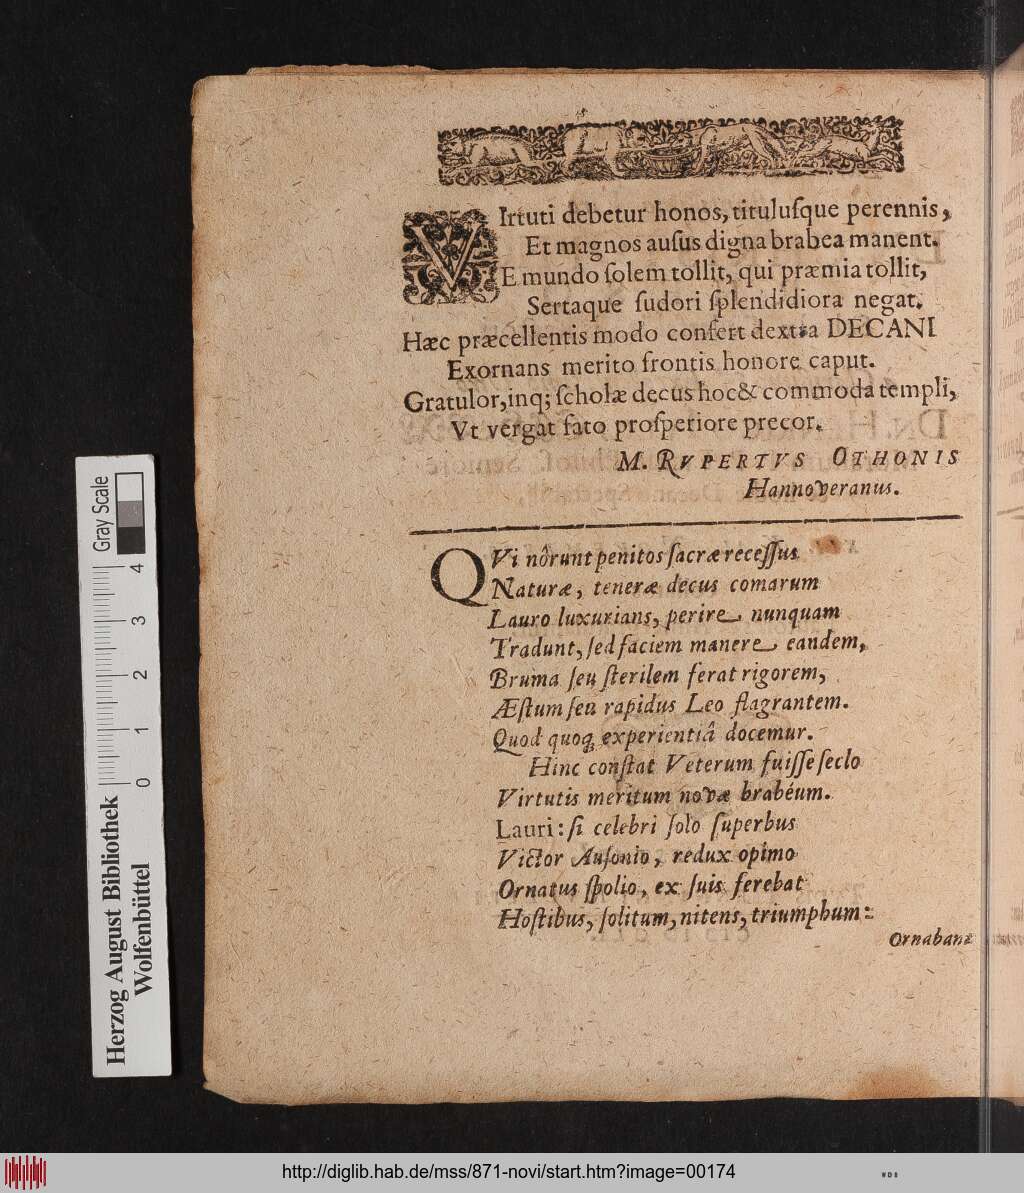 VIrtuti debetur honos, titulusque perennis,
Et magnos ausus digna brabea manent.
E mundo solem tollit, qui præmia tollit,
Sertaque sudori splendidiora negat.
Hæc præcellentis modo confert dextra DECANI
Exornans merito frontis honore caput.
Gratulor, inq; scholæ decus hoc & commoda templi,
Vt vergat fato prosperiore precor.
M. RVPERTVS OTHONIS
Hannoveranus.
QVi nôrunt penitos sacræ recessus
Naturæ, teneræ decus comarum
Lauro luxurians, perire nunquam
Tradunt, sed faciem manere eandem,
Bruma seu sterilem ferat rigorem,
Æstum seu rapidus Leo flagrantem.
Quod quoq; experientiâ docemur.
Hinc constat Veterum fuisse seclo
Virtutis meritum novæ brabéum.
Lauri: si celebri solo superbus
Victor Ausonio, redux opimo
Ornatus spolio, ex suis ferebat
Hostibus, solitum, nitens, triumphum:
Ornabant
Gray Scale
0 1 2 3 4
Herzog August Bibliothek
Wolfenbüttel
http://diglib.hab.de/mss/871-novi/start.htm?image=00174